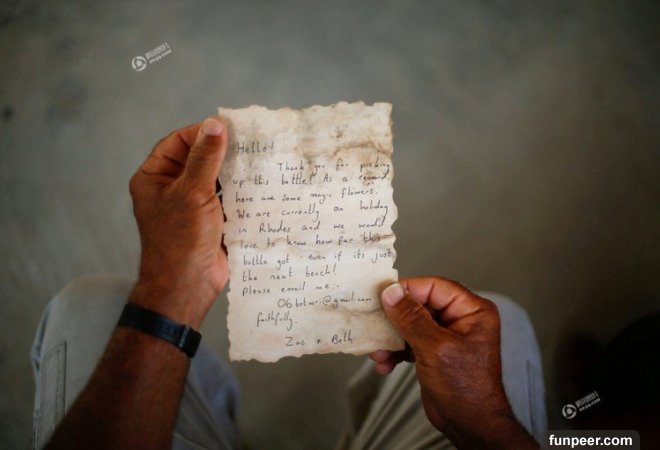 Hello!
Thank you for picking
up this bottle! As a reward,
here are some magic flowers.
We are currently on holiday
in Rhodes and we would
love to know how far this
bottle got - even if its just
the next beach!
Please email me:-
faithfully,
Zac + Beth
funpeer.com